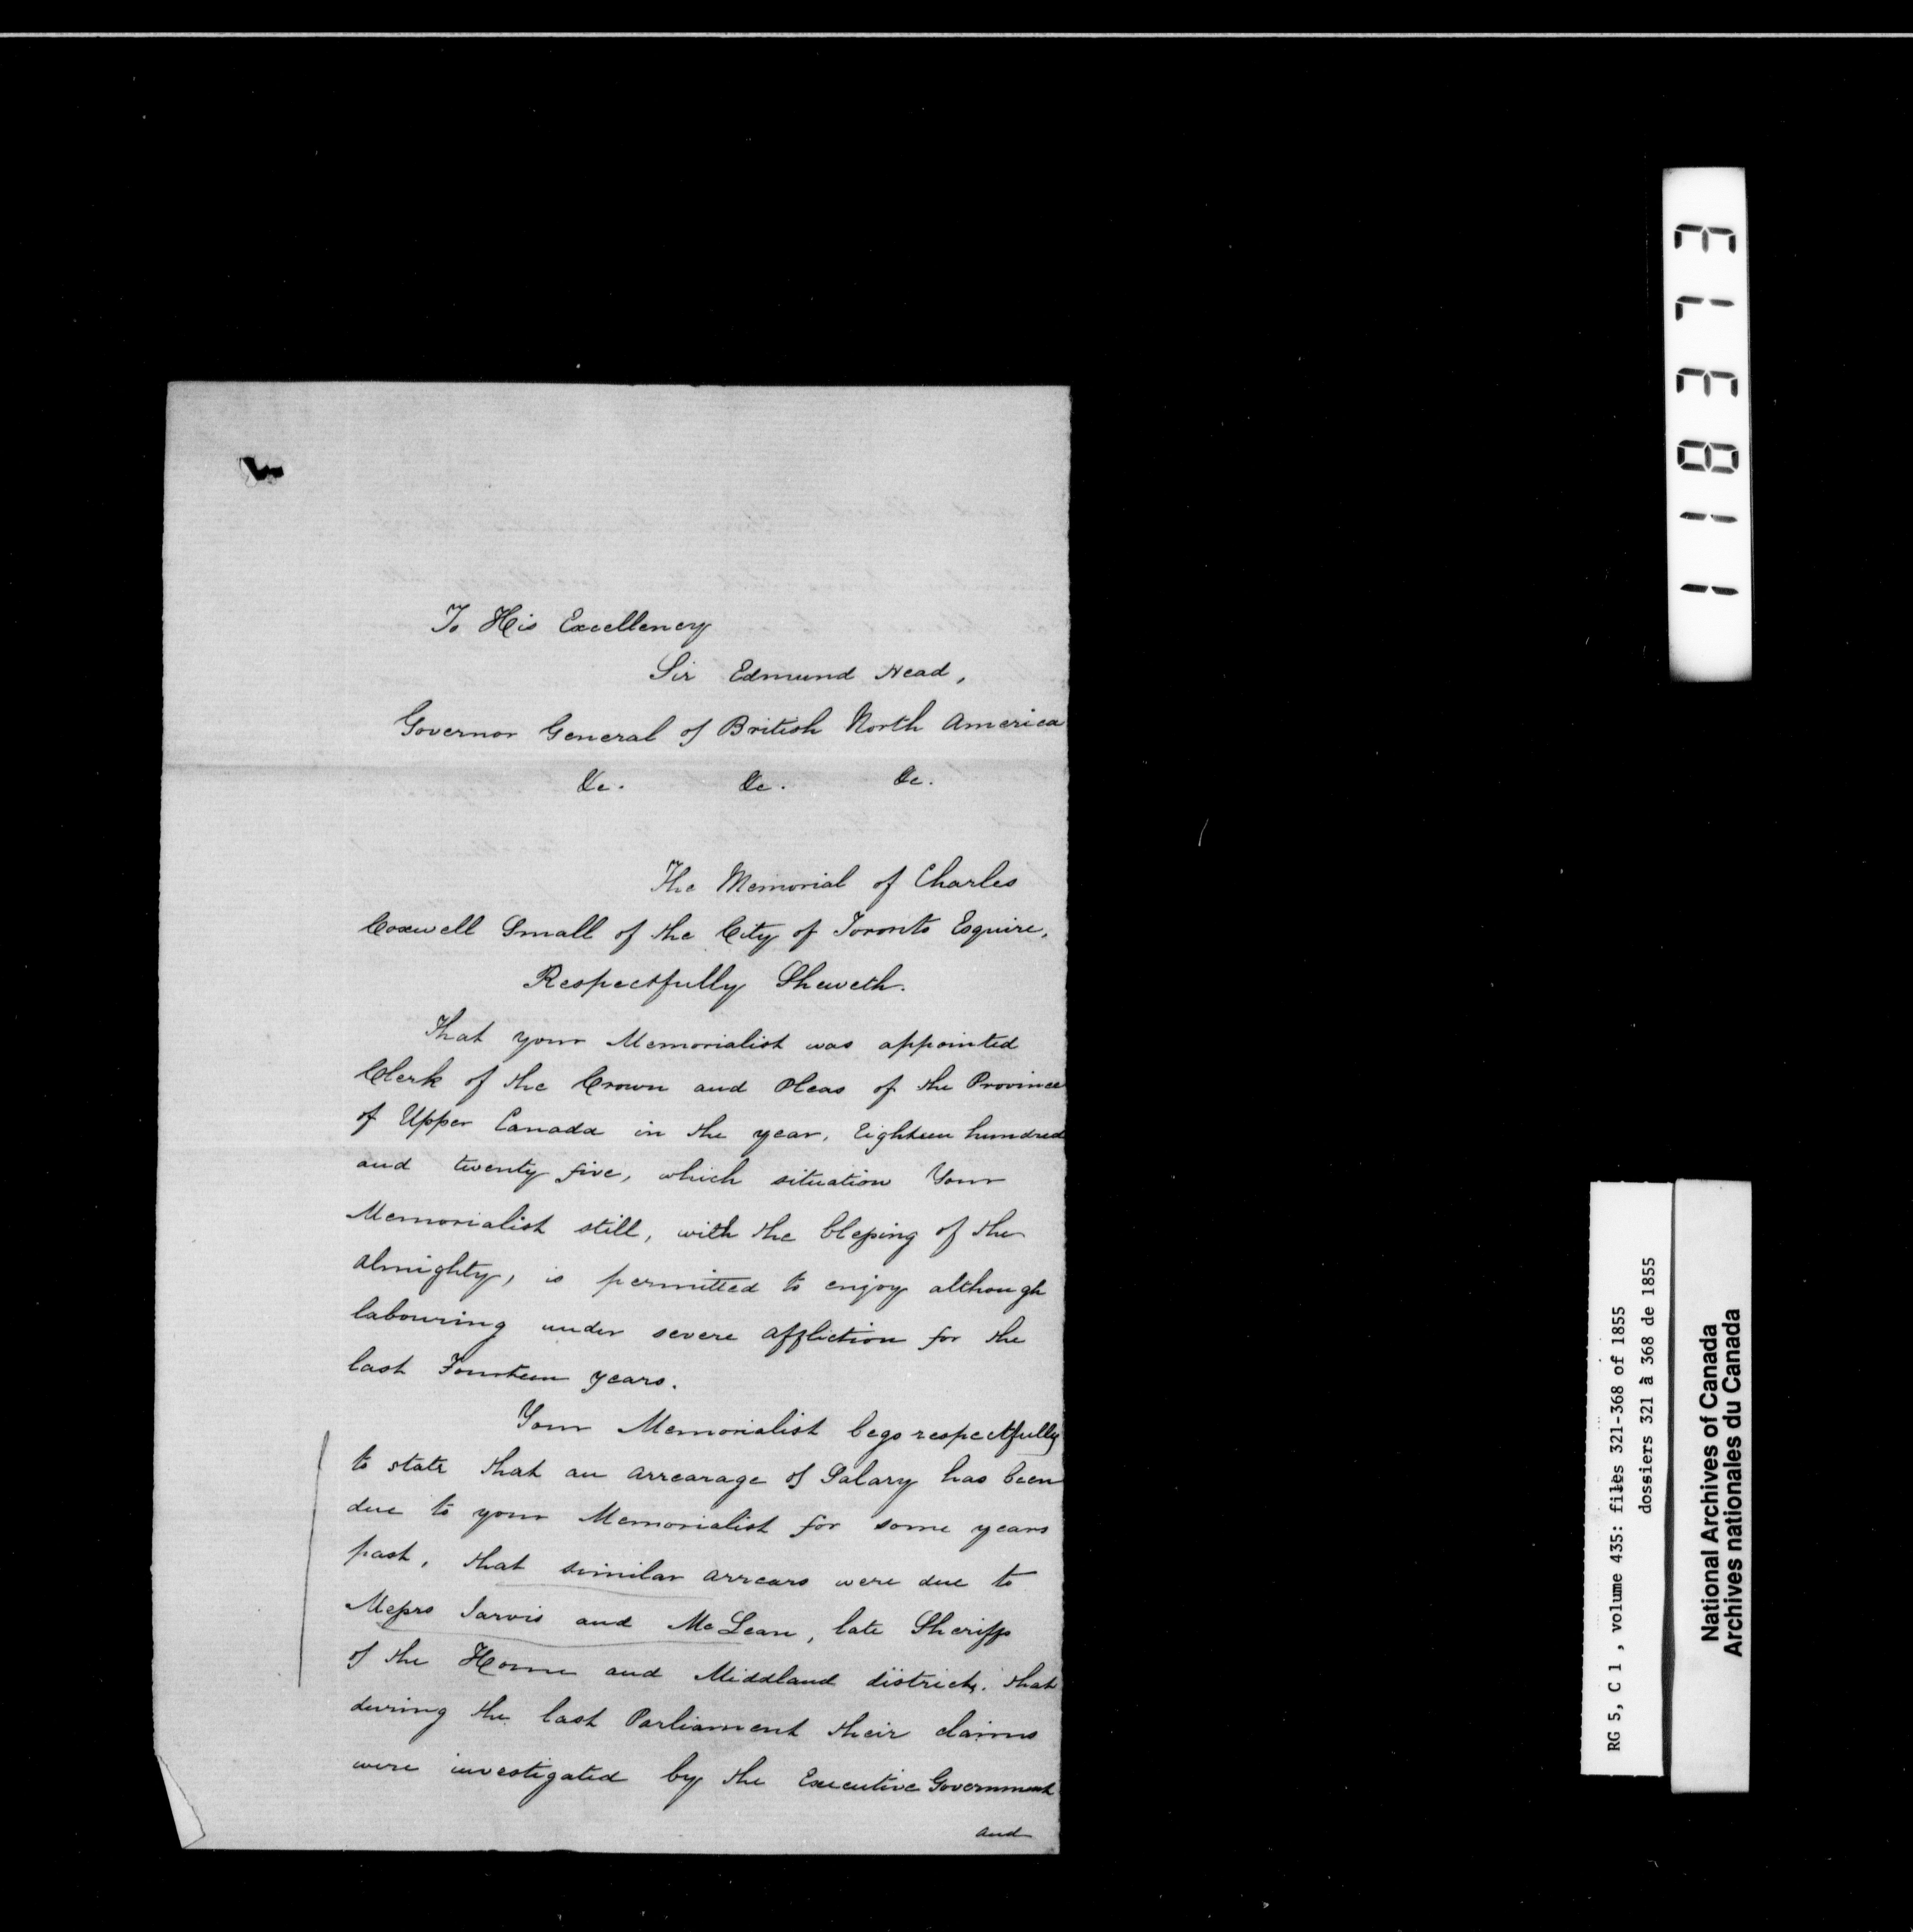 To His Excellency
Sir Edmund Head,
Governor General of British North America
&c. &c. &c.
The Memorial of Charles
Coxwell Small of the City of Toronto Esquire,
Respectfully Sheweth.
That your Memorialist was appointed
Clerk of the Crown and Pleas of the Province
of Upper Canada in the year, Eighteen hundred
and twenty five, which situation Your
Memorialist still, with the blessing of the
Almighty, is permitted to enjoy although
labouring under severe affliction for the
last Fourteen years.
Your Memorialist begs respectfully
to state that an arrearage of Salary has been
due to your Memorialist for some years
past, that similar arrears were due to
Messrs Jarvis and McLean, late Sheriffs
of the Home and Middland districts. that
during the last Parliament their claims
were investigated by the Executive Government
and
113173
RG 5, C 1, volume 435: files 321-368 of 1855
dossiers 321 à 368 de 1855
National Archives of Canada
Archives nationales du Canada